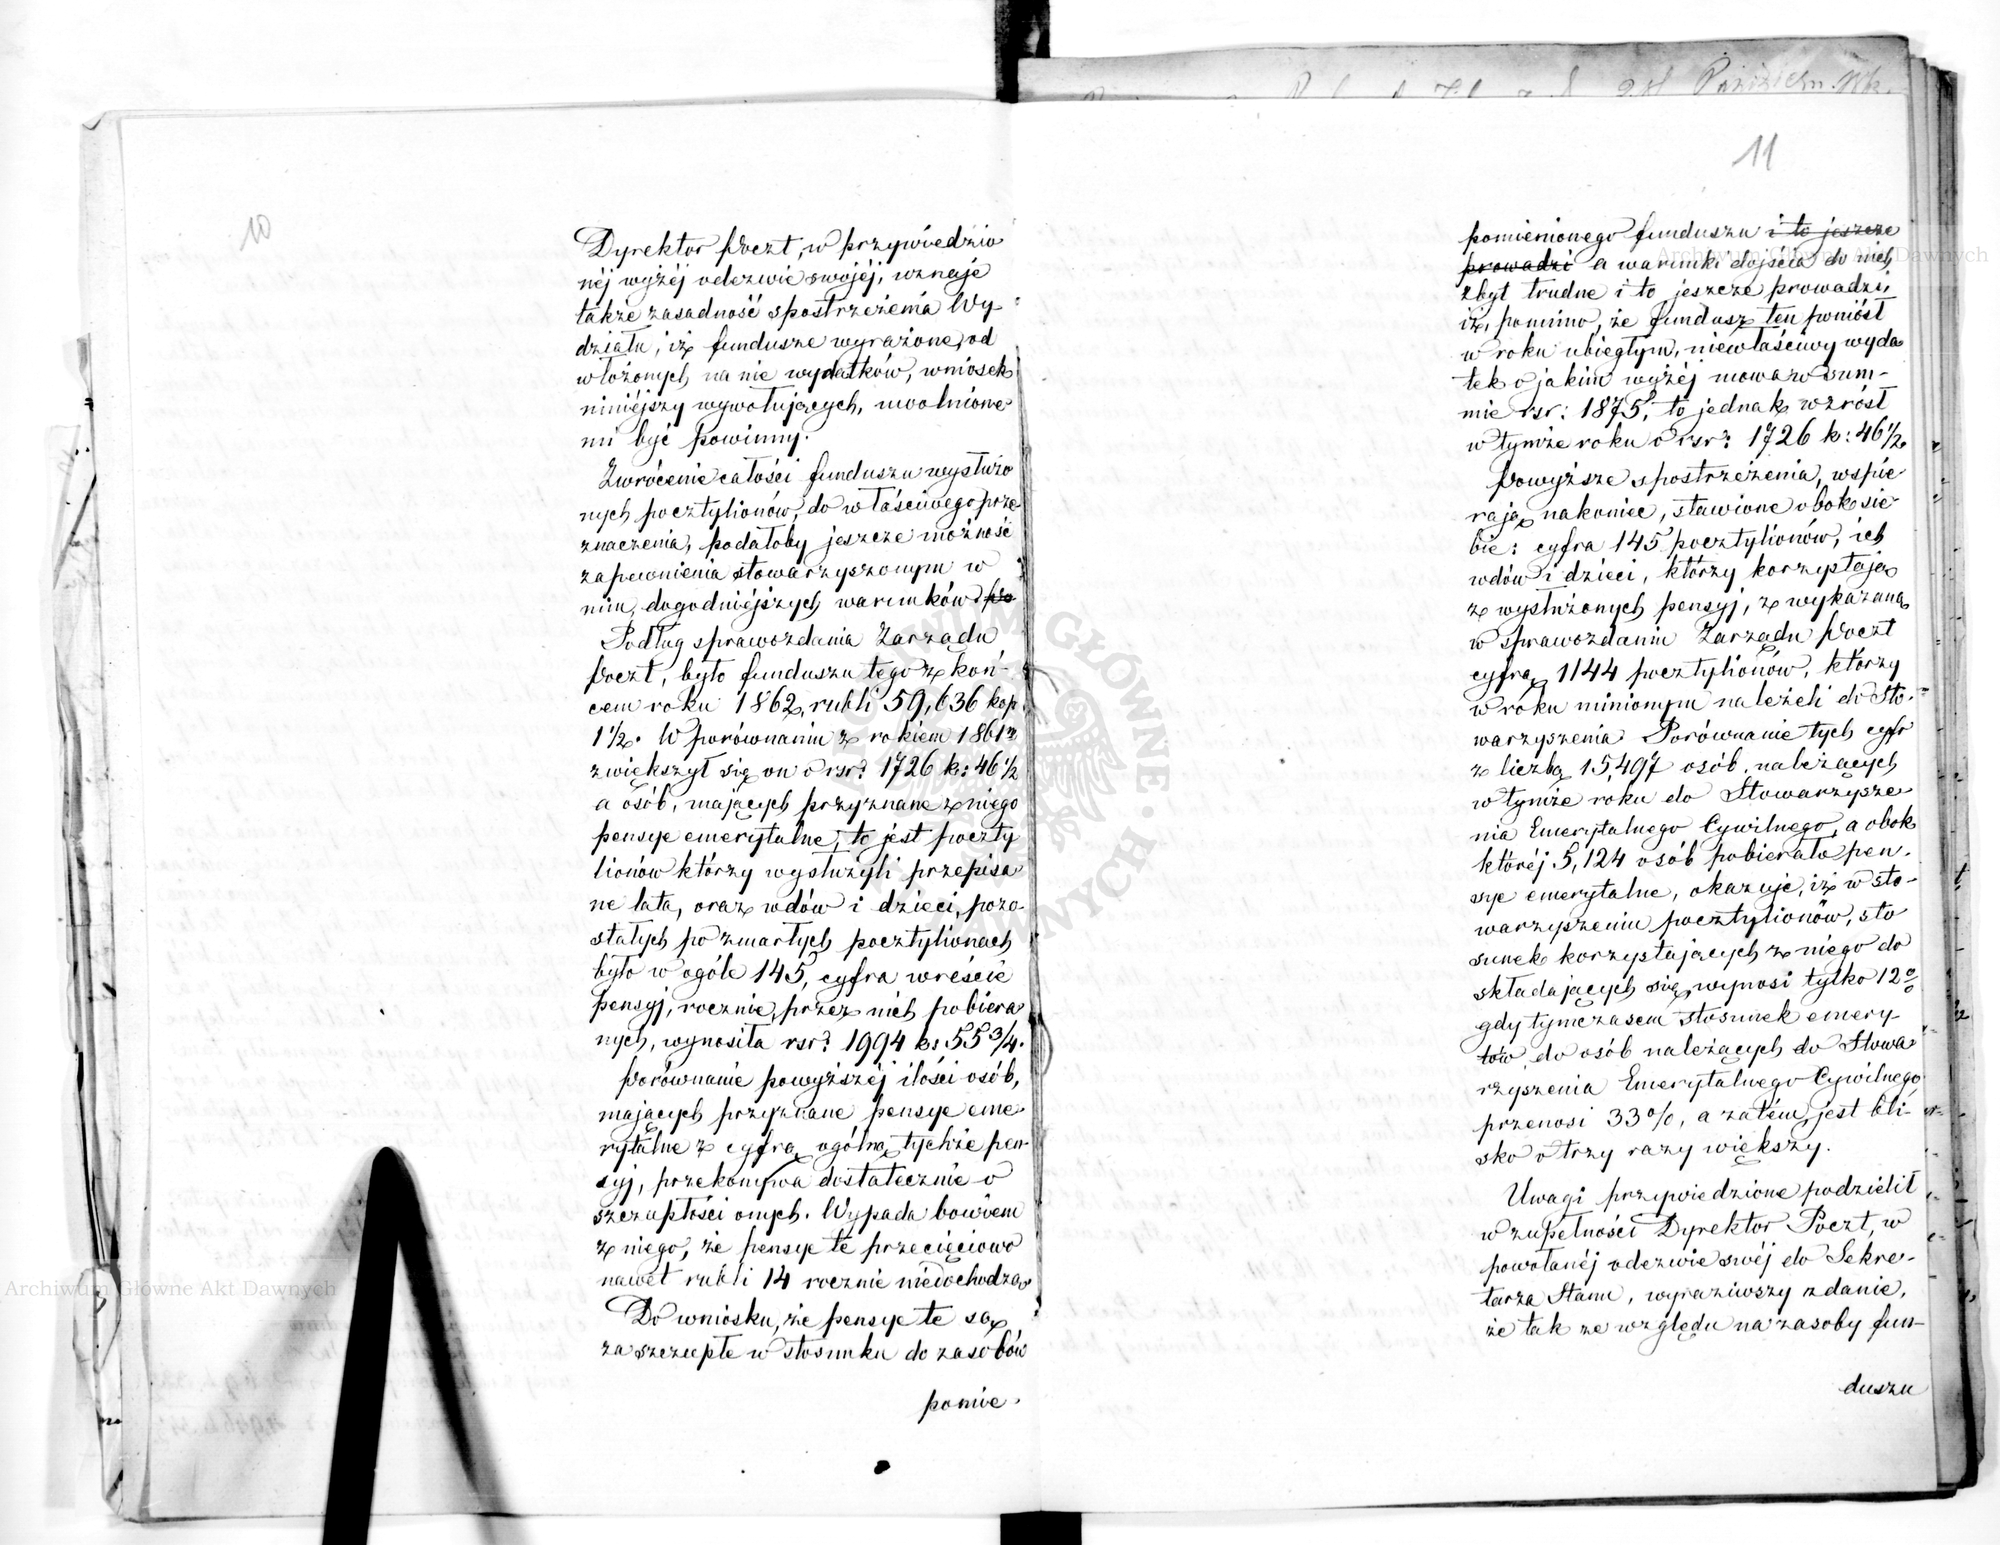 10
Dyrektor Poczt, w przywiedzio
néj wyżéj odezwie swojéj, uznaje
także zasadność spostrzeżenia Wy-
działu, iż fundusze wyrażone, od
włożonych na nie wydatków, wniosek
niniéjszy wywołujących, uwolnione
mi być powinny.
Zwrócenie całości funduszu wysłużo
nych pocztylionów, do właściwego prze-
znaczenia, podałoby jeszcze możność
zapewnienia stowarzyszonym w
nim, dogodniéjszych warunków
Podług sprawozdania Zarządu
Poczt, było funduszu tego z koń-
cem roku 1862, rubli 59,636 kop.
1½. W porównaniu z rokiem 1861m
zwiększył się on o rsr: 1726 k: 46½
a osób, mających przyznane z niego
pensye emerytalne, to jest poczty
lionów którzy wysłużyli przepisa
ne lata, oraz wdów i dzieci, pozo-
stałych po zmarłych pocztylionach
było w ogóle 145, cyfra wreście
pensyj, rocznie, przez nich pobiera
nych, wynosiła rsr: 1994 k: 55¾.
Porównanie powyższéj ilości osób,
mających przyznane pensye eme-
rytalne z cyfrą ogólną tychże pen-
syj, przekonywa dostatecznie o
szczupłości onych. Wypada bowiem
z niego, że pensye te przecięciowo
nawet rubli 14 rocznie niedochodzą.
Do wniosku, że pensye te są
za szczupłe w stosunku do zasobów
pomie-
11
pomienionego funduszu i to jeszcze
prowadzi a warunki dojścia do nich
zbyt trudne i to jeszcze prowadzi,
iż, pomimo, że fundusz ten poniósł
w roku ubiegłym, niewłaściwy wyda
tek o jakim wyżéj mowa w sum-
mie rsr: 1875, to jednak wzrósł
w tymże roku o rsr: 1726 k: 46½
Powyższe spostrzeżenia, wspie
rają nakoniec, stawione obok sie-
bie: cyfra 145 pocztylionów, ich
wdów i dzieci, którzy korzystają
z wysłużonych pensyj, z wykazaną
w sprawozdaniu Zarządu Poczt
cyfrą 1144 pocztylionów, którzy
w roku minionym należeli do Sto-
warzyszenia Porównanie tych cyfr
z liczbą 15,497 osób, należących
w tymże roku do Stowarzysze
nia Emerytalnego Cywilnego, a obok
któréj 5,124 osób pobierało pen-
sye emerytalne, okazuje, iż w sto-
warzyszeniu pocztylionów, sto
sunek korzystających z niego do
składających się, wynosi tylko 12%
gdy tymczasem stosunek emery-
tów do osób należących do Stowa-
rzyszenia Emerytalnego Cywilnego
przenosi 33%, a zatém jest bli-
sko o trzy razy większy.
Uwagi przywiedzione podzielił
w zupełności Dyrektor Poczt, w
powołanéj odezwie swéj do Sekre-
tarza Stanu, wyraziwszy zdanie,
że tak ze względu na zasoby fun-
duszu
Archiwum Główne Akt Dawnych
Archiwum Główne Akt Dawnych